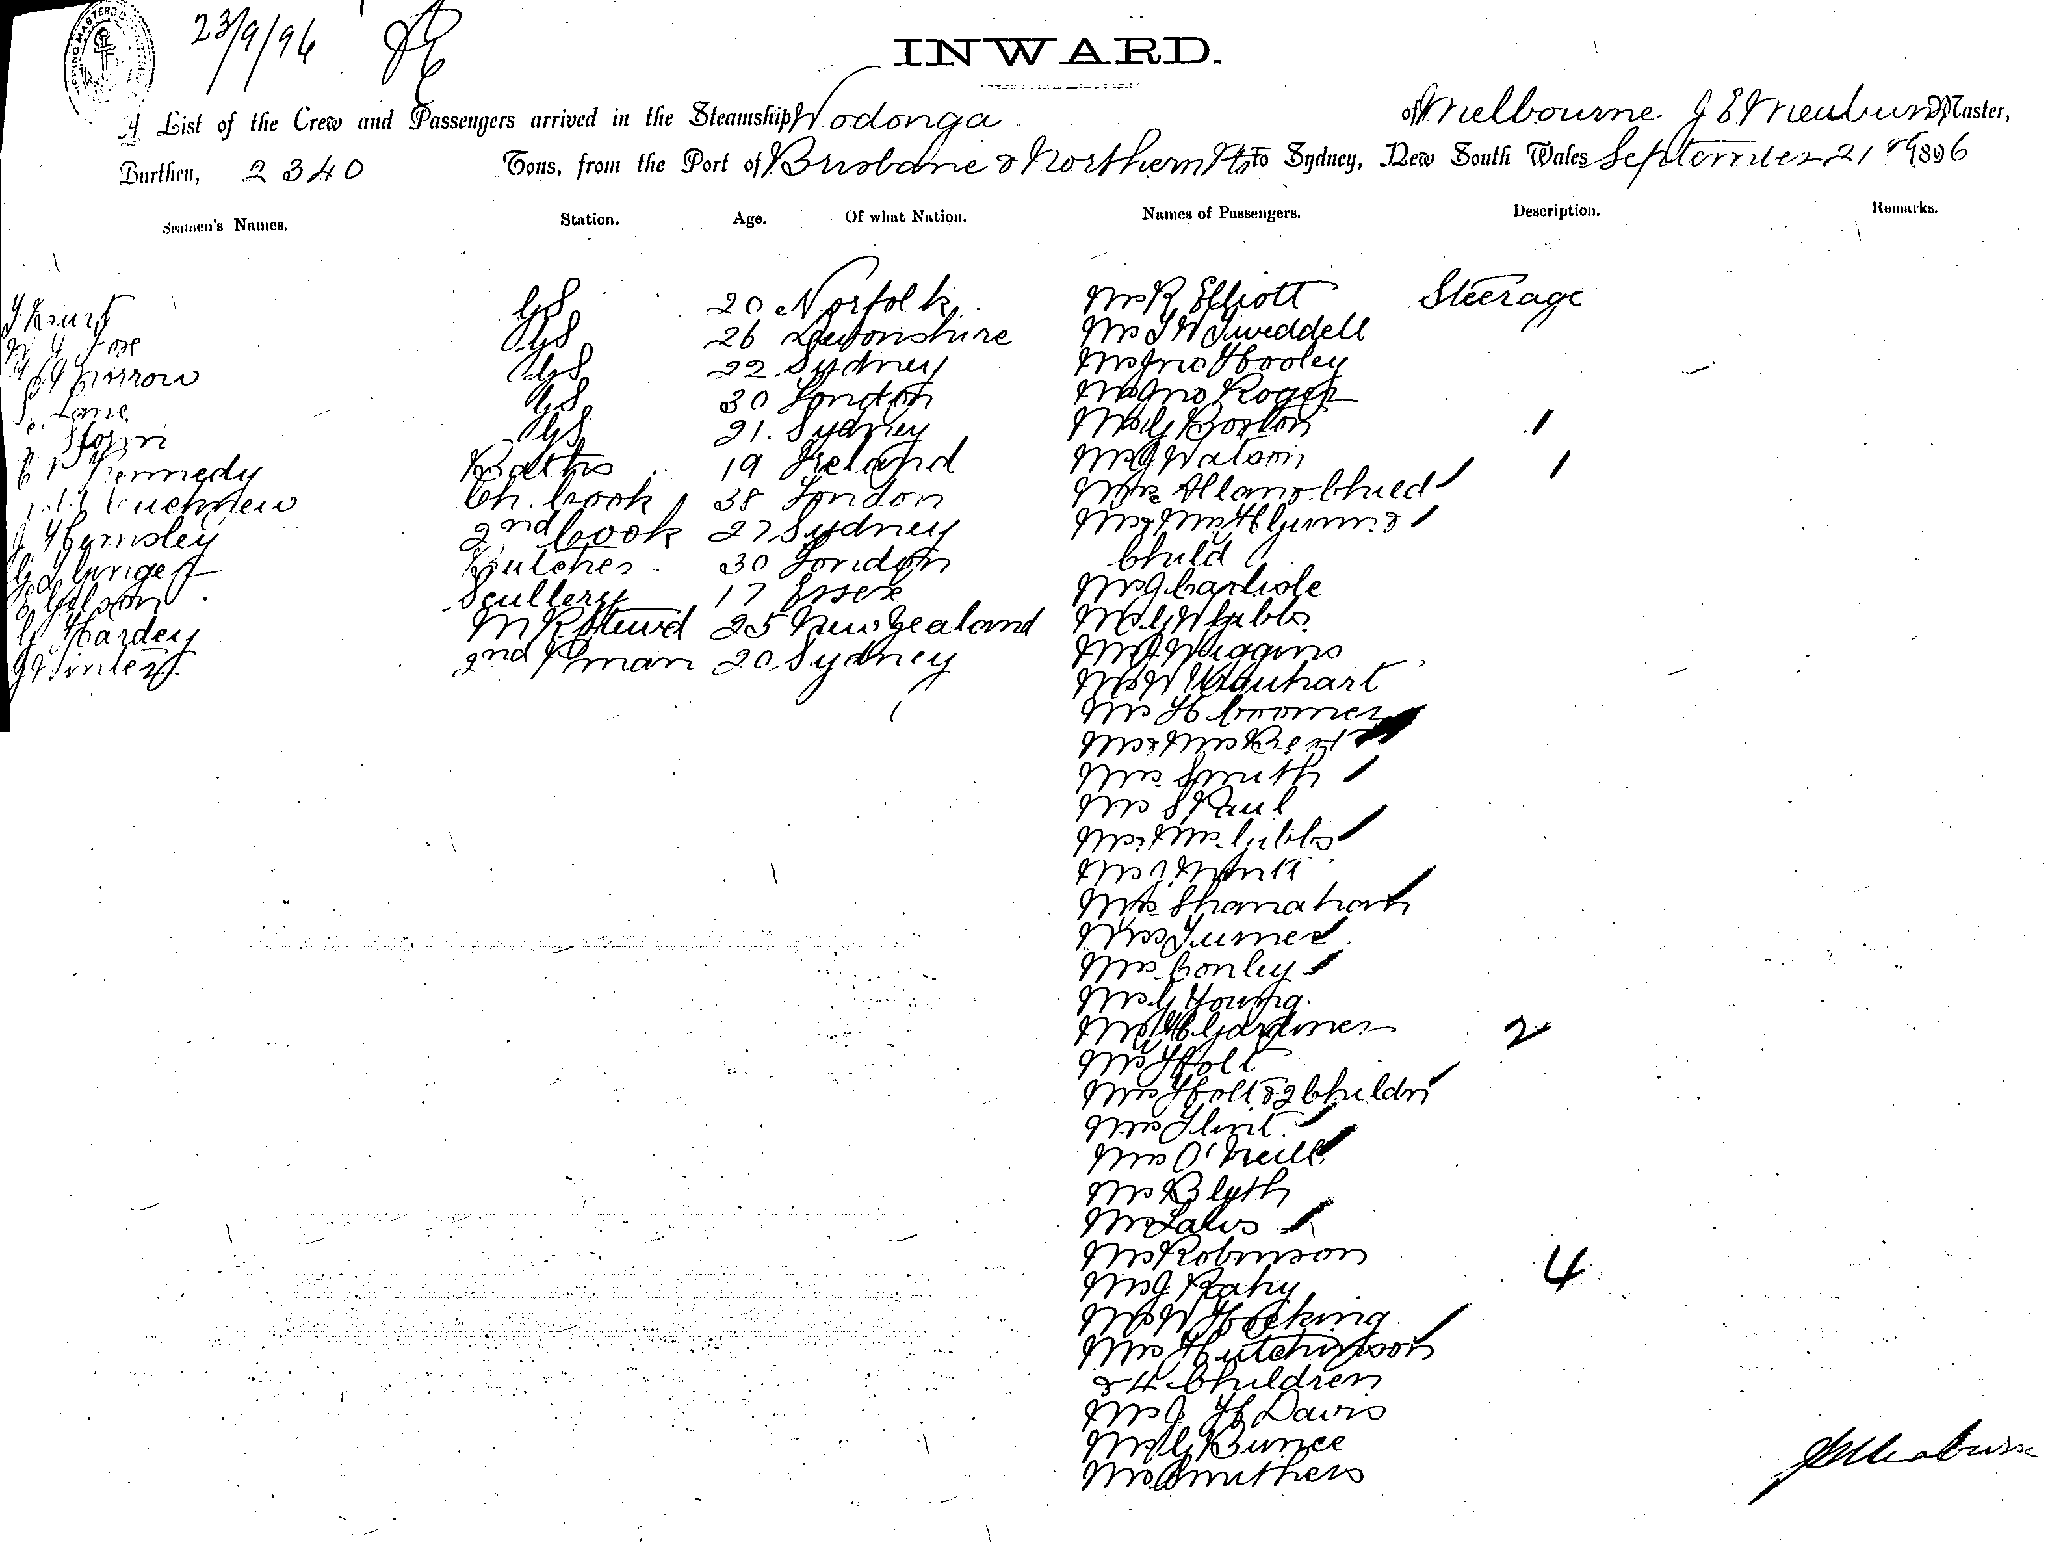 23/9/96
INWARD.
A List of the Crew and Passengers arrived in the Steamship Wodonga of Melbourne J E Meaburn Master,
Burthen, 2340 Tons, from the Port of Brisbane & Northern Pts to Sydney, New South Wales September 21st 1896
Seamen's Names. Station. Age. Of what Nation. Names of Passengers. Description. Remarks.
GS 20 Norfolk Mr R Elliott Steerage
GS 26 Devonshire Mr J W Tweddell
GS 22 Sydney Mr Jno Hooley
Lane GS 30 London Mr Jno Roger
GS 21 Sydney Mr G Borton 1
Kennedy Baths 19 Ireland Mr J Watson 1
Ch. Cook 38 London Mrs Allan & Child
Hemsley 2nd Cook 27 Sydney Mr & Mrs H Glynn &
Butcher 30 London Child
Scullery 17 Essex Mr J Carlisle
Hardey M R Stewd 25 New Zealand Mr G W Gibbs
2nd P man 20 Sydney Mr J Wiggins
Mr W Urquhart
Mr H Coomer
Mr & Mrs
Mrs Smith
Mr S Paul
Mr & Mrs Gibbs
Mr J
Mrs Shanahan
Mrs Turner
Mrs Conley
Mr G Young
Mr H Gardiner 2
Mr Holt
Mrs Holt & 2 Childn
Mrs Flint
Mrs O'Neill
Mr Blyth
Mrs Laws
Mr Robinson
Mr J Rahy 4
Mr W Hocking
Mrs Hutchinson
& 4 Children
Mr J H Davis
Mr G Bunce
Mr Smithers
J E Meaburn